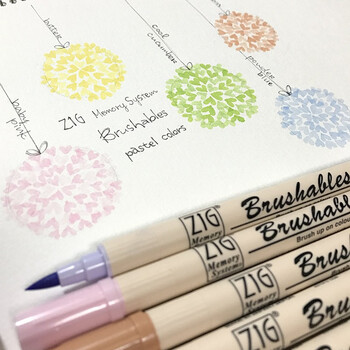 butter
cool
cucumber
powder
blue
baby
pink
ZIG Memory System
Brushables
pastel colors
ZIG
Memory
Brushables
ZIG
Memory
Systems
Brushables
Brush up on colou
ZIG
Memory
Brushab
ZIG
Bru